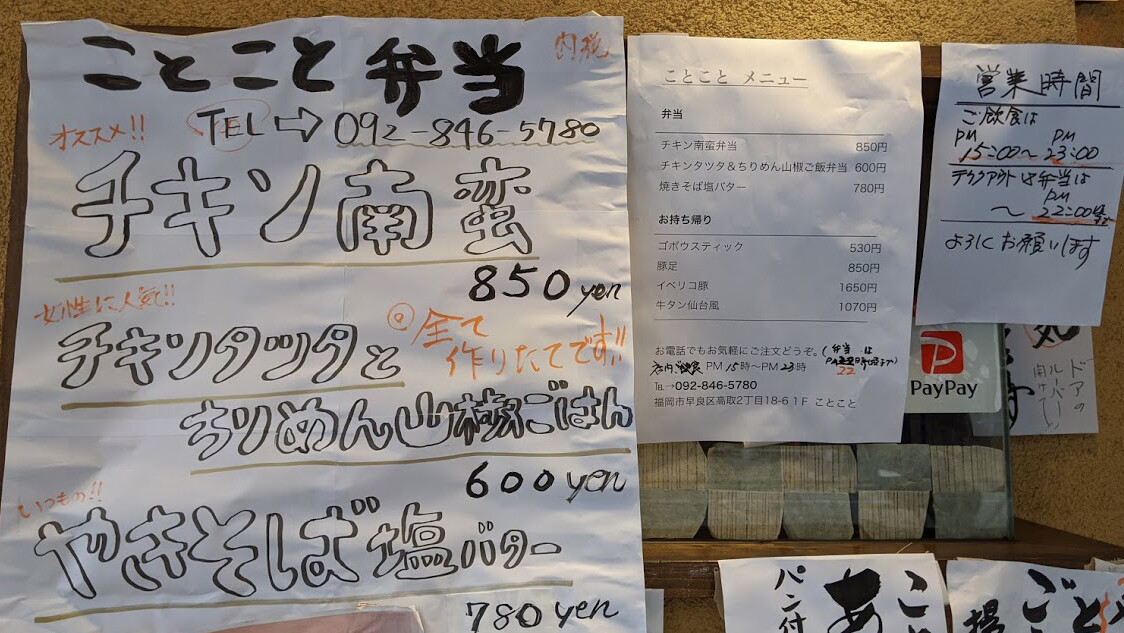 ことこと弁当
内税
オススメ!!
TEL⇨092-846-5780
チキン南蛮
850yen
女性に人気!!
チキンタツタと
全て
作りたてです!!
ちりめん山椒ごはん
600yen
いつもの!!
やきそば塩バター
780yen
ことこと メニュー
弁当
チキン南蛮弁当 850円
チキンタツタ＆ちりめん山椒ご飯弁当 600円
焼きそば塩バター 780円
お持ち帰り
ゴボウスティック 530円
豚足 850円
イベリコ豚 1650円
牛タン仙台風 1070円
お電話でもお気軽にご注文どうぞ。(弁当は
店内ご飲食 PM 15時〜PM 23時
22
℡→092-846-5780
福岡市早良区高取2丁目18-6 1F ことこと
営業時間
ご飲食は
PM PM
15:00〜23:00
テイクアウト 弁当は
PM
〜22:00
よろしくお願いします
PayPay
ドアの
パン付
あ
こ
ご
場